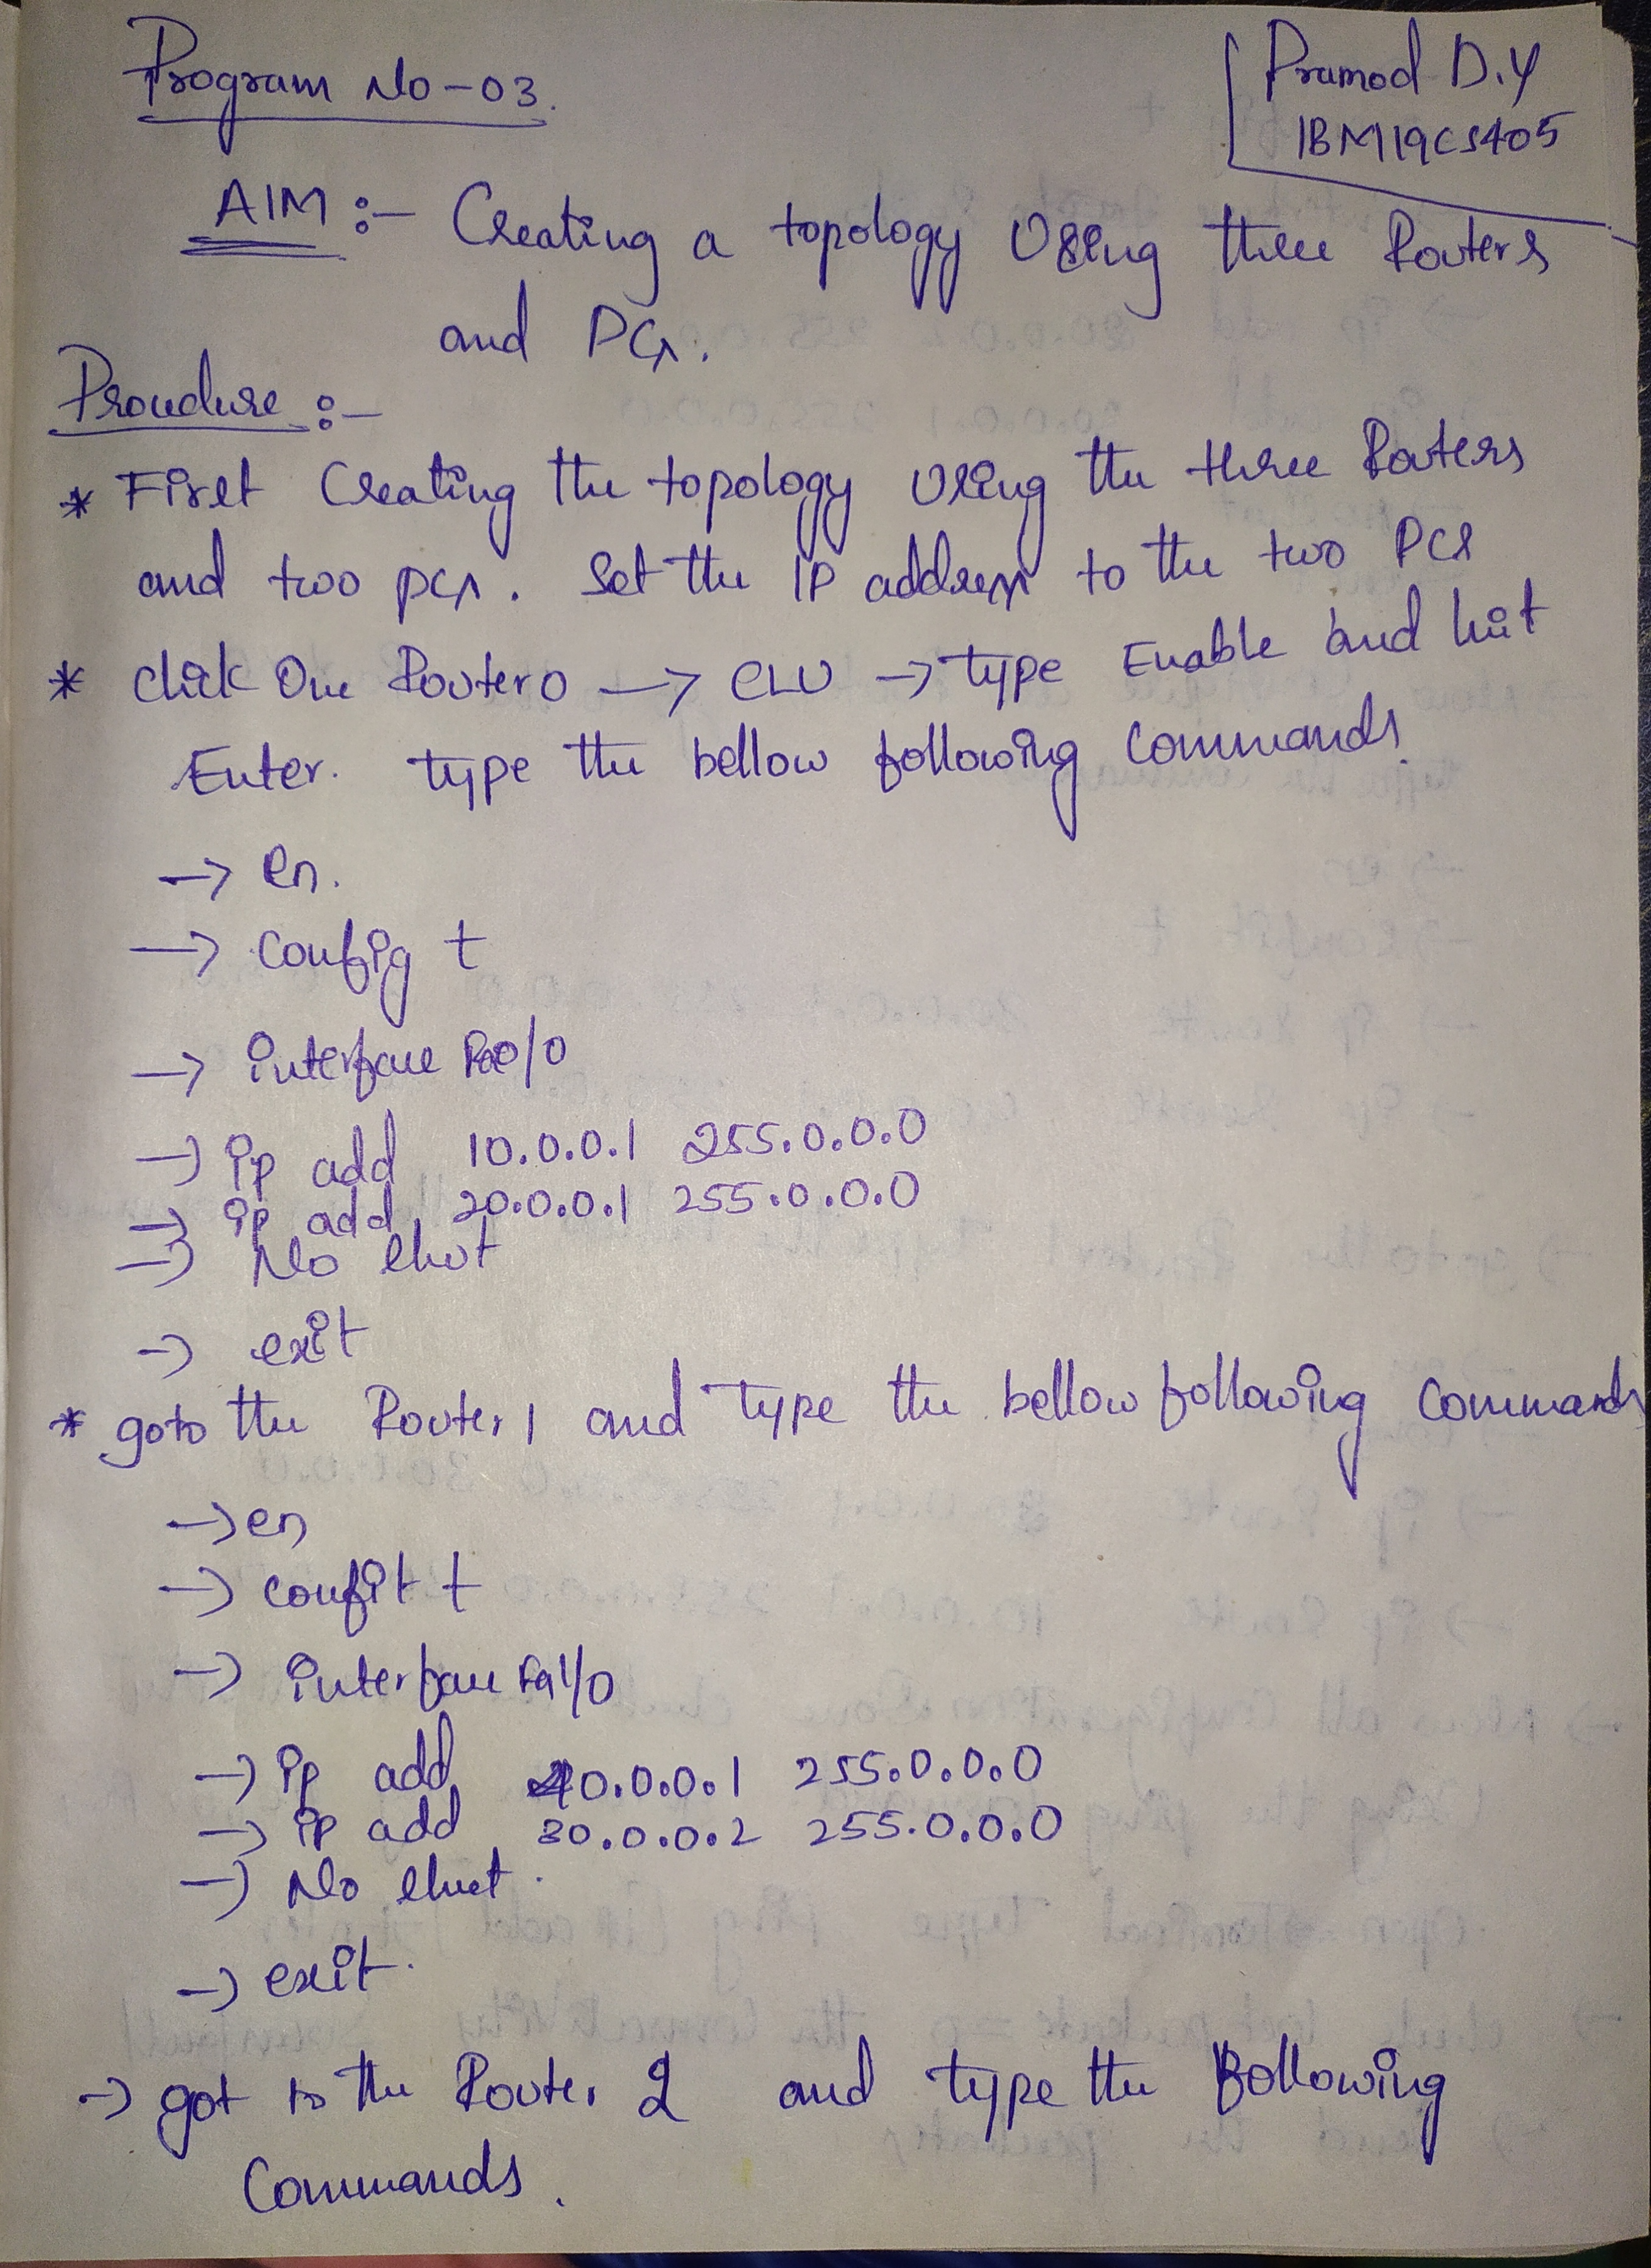 Program No-03.
Pramod D.Y
1BM19CS405
AIM :- Creating a topology Using three Routers
and PCs.
Proudure :-
* First Creating the topology Using the three Routers
and two pcs. Set the IP address to the two PCs
* Click One Router0 → CLU → type Enable and hit
Enter. type the bellow following Commands.
→ en.
→ Config t
→ interface Fa0/0
→ ip add 10.0.0.1 255.0.0.0
→ ip add 20.0.0.1 255.0.0.0
→ No shut
→ exit
* goto the Router 1 and type the bellow following Commands
→ en
→ confit t
→ interface Fa1/0
→ ip add 40.0.0.1 255.0.0.0
→ ip add 30.0.0.2 255.0.0.0
→ No shut
→ exit.
→ got to the Router 2 and type the following
Commands.